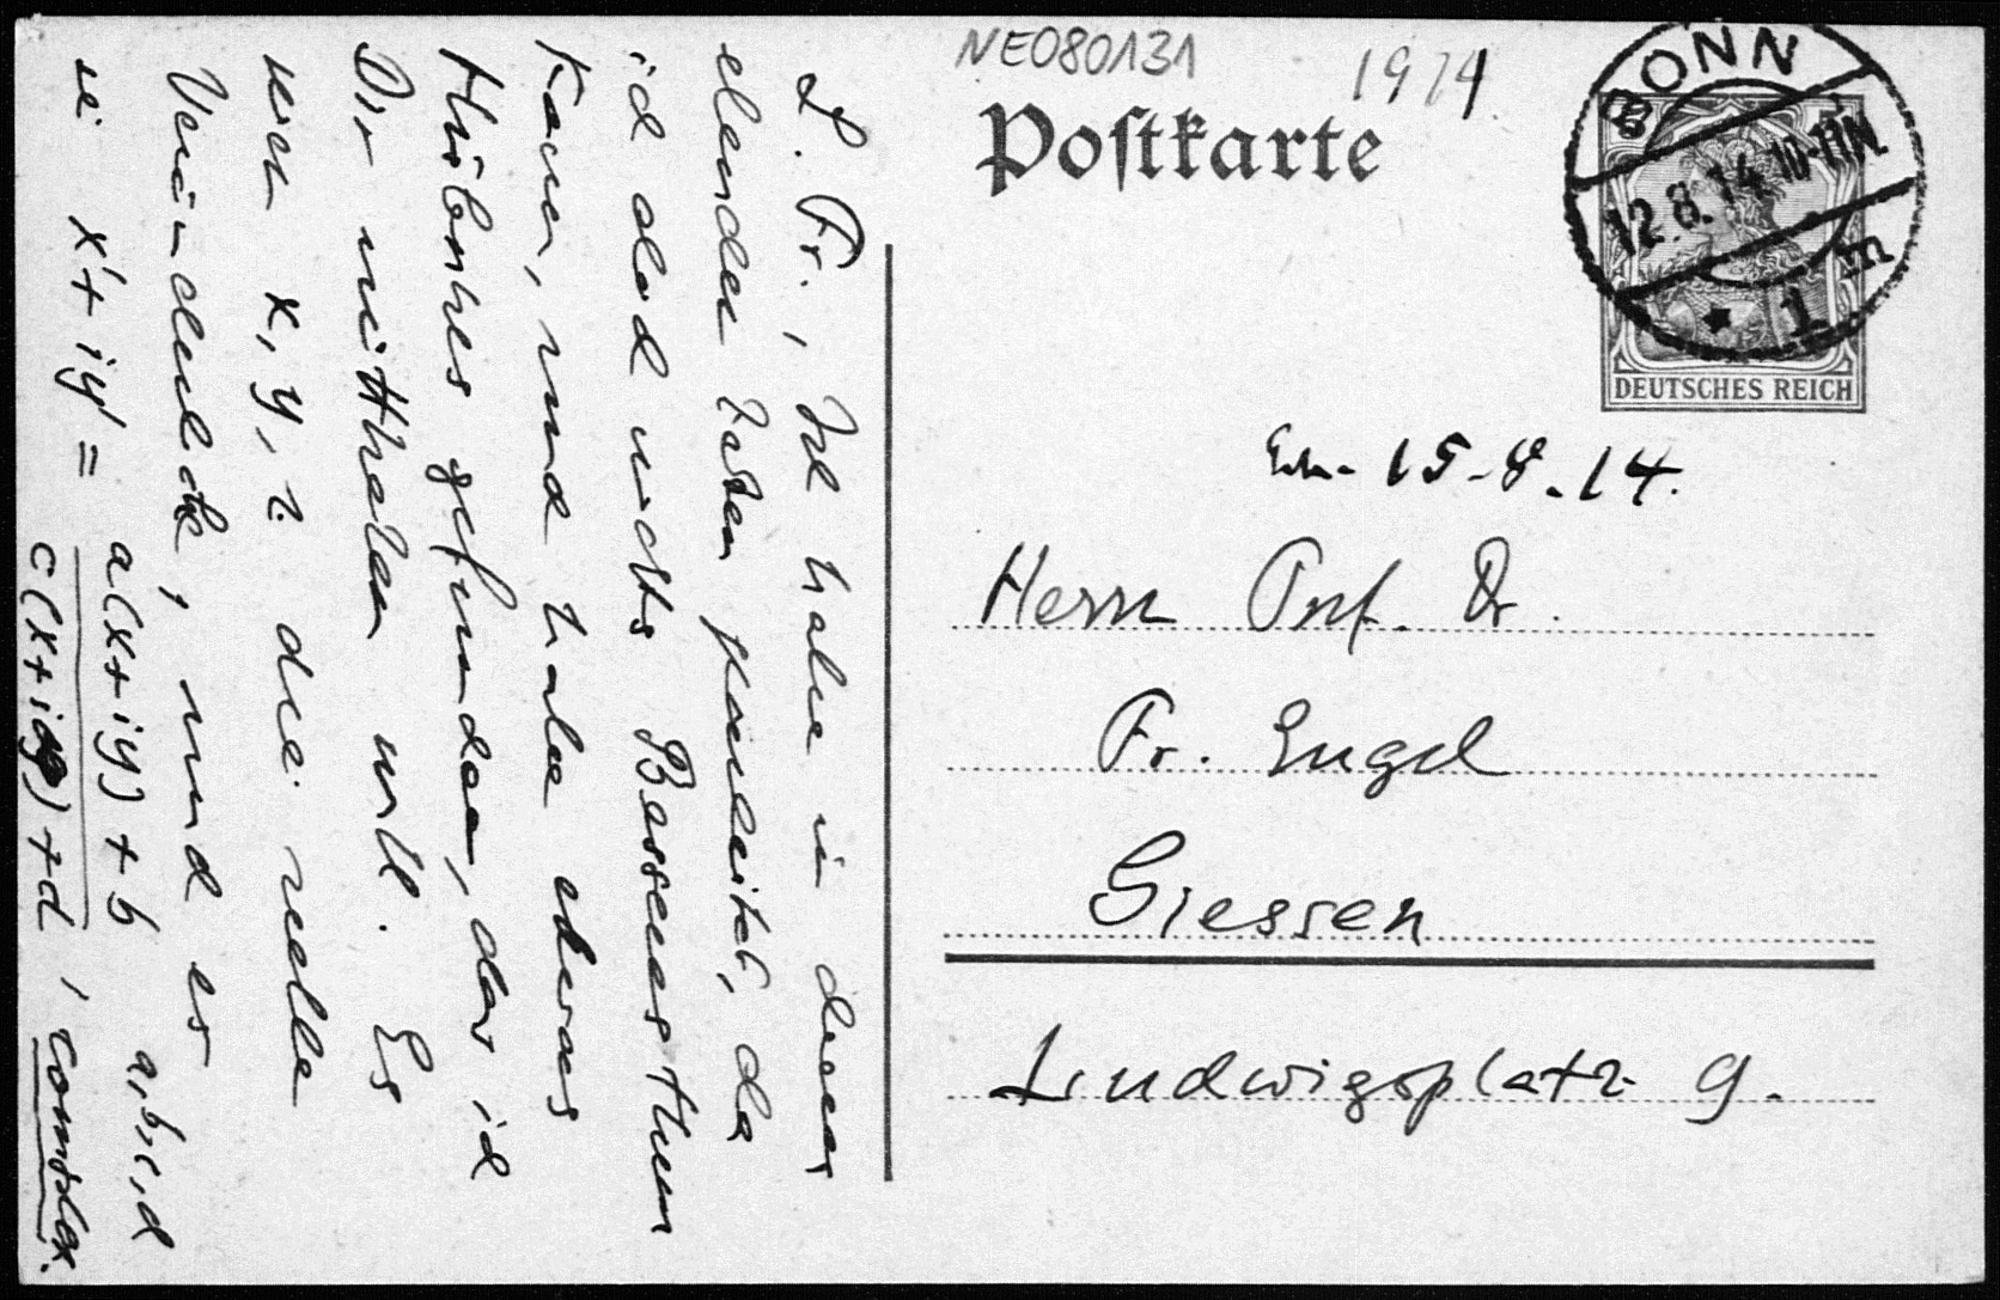 NE080131
1914
Postkarte
BONN
12.8.14 10-11N.
* 1 m
DEUTSCHES REICH
15-8.14.
Herrn Prof. Dr.
Fr. Engel
Giessen
Ludwigsplatz 9.
L. Fr., Ich habe in diesen
elenden Zeiten gearbeitet, da
ich doch nichts Besseres thun
kann, und habe etwas
Hübsches gefunden, das ich
Dir mittheilen will. Es
seien x, y, z die reelle
Veränderliche, und es
sei x'+iy' = a(x+iy)+b / c(x+iy)+d , a,b,c,d complex.